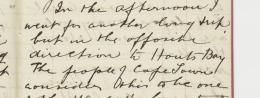 In the afternoon I
went for another long trip
but in the opposite
direction to Houts Bay
The people of Cape Town
consider this to be one